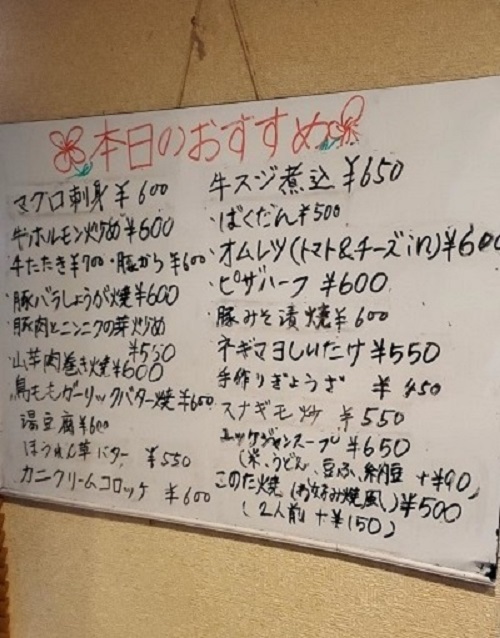 本日のおすすめ
マグロ刺身 ¥600
牛ホルモン炒め ¥600
牛たたき ¥700・豚から ¥600
・豚バラしょうが焼 ¥600
・豚肉とニンニクの芽炒め
¥550
・山芋肉巻き焼 ¥600
・鳥ももガーリックバター焼 ¥650
湯豆腐 ¥600
ほうれん草バター ¥550
カニクリームコロッケ ¥600
牛スジ煮込 ¥650
・ばくだん ¥500
・オムレツ(トマト&チーズin) ¥600
・ピザハーフ ¥600
豚みそ漬焼 ¥600
ネギマヨしいたけ ¥550
手作りぎょうざ ¥450
スナギモ炒 ¥550
ユッケジャンスープ ¥650
(米、うどん、豆ふ、納豆 +¥90)
このた焼(お好み焼風) ¥500
(2人前 +¥150)